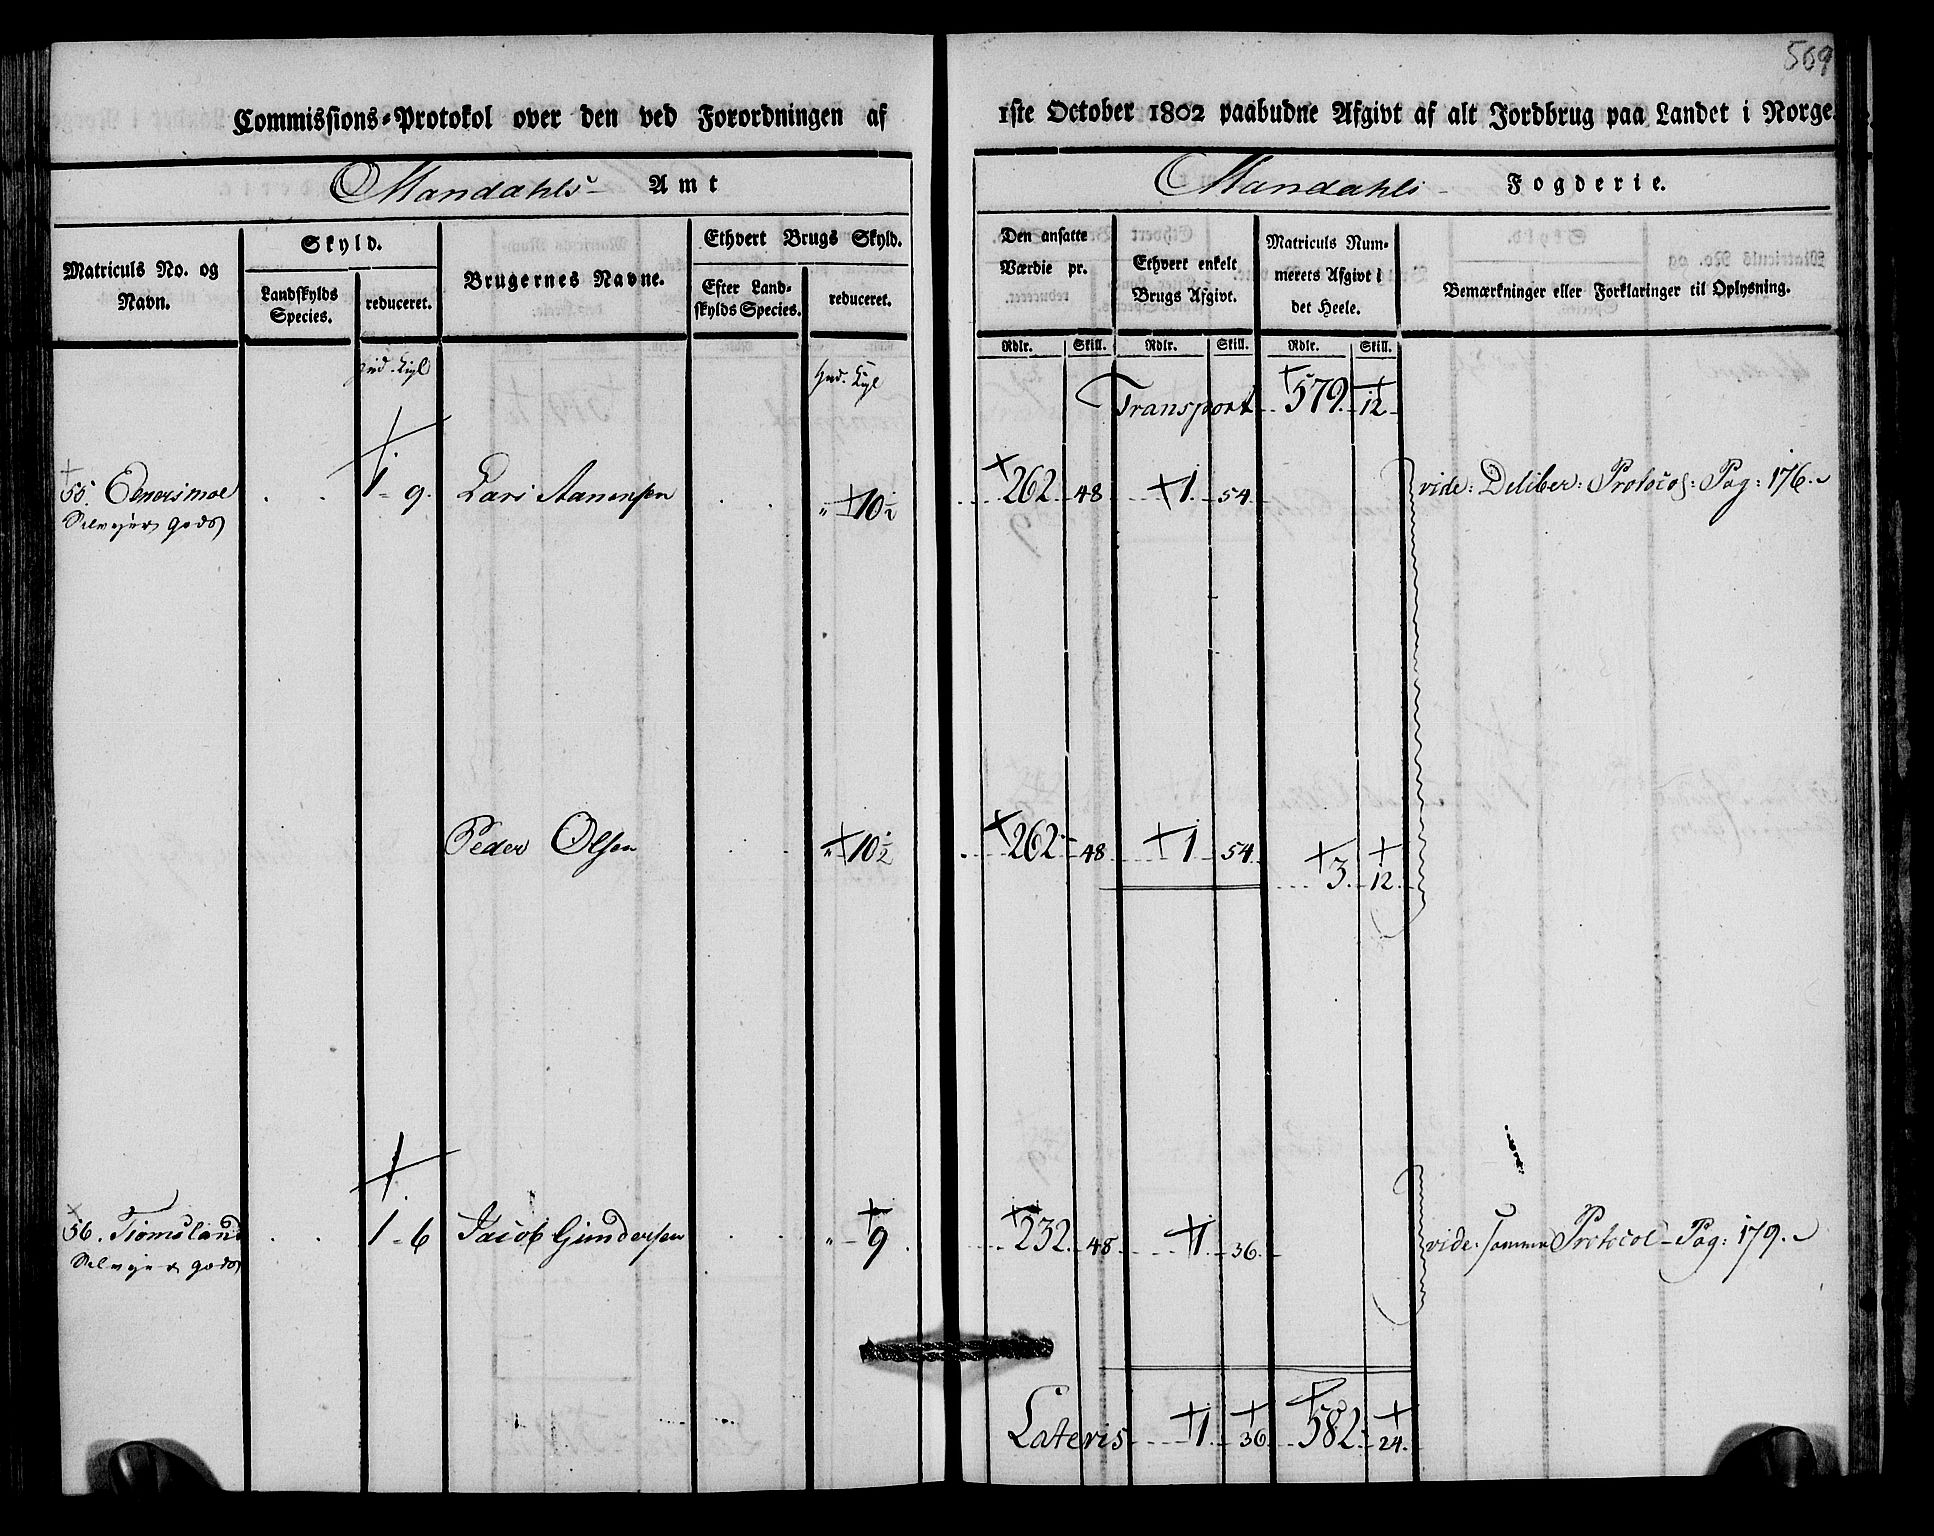 569
Commissions-Protokol over den ved Forordningen af 1ste October 1802 paabudne Afgivt af alt Jordbrug paa Landet i Norge.
Mandahls Amt
Mandahls Fogderie.
Matriculs No. og Navn.
Skyld.
Landskylds Species.
reduceret.
Brugernes Navne.
Ethvert Brugs Skyld.
Efter Landskylds Species.
reduceret.
Den ansatte Værdie pr.
Ethvert enkelt Brugs Afgivt.
Matriculs Nummerets Afgivt i det Heele.
Bemærkninger eller Forklaringer til Oplysning.
Rdlr. Skill. Rdlr. Skill. Rdlr. Skill.
Hud. Kigl Hud. Kigl
Transport 579. 12
55. Eenersmoe 1 - 9. Lars Aanensen " 10½ 262 48 1 54 vide: Deliber: Protocol: Pag: 176.
Selveyer gods
Peder Olsen " 10½ 262 48 1 54. 3. 12.
56. Tiomsland 1 - 6 Jacob Gundersen " 9 232. 48 1 36. vide. samme Protocol - Pag: 179.
Selveyer gods
Lateris 1. 36 582. 24.